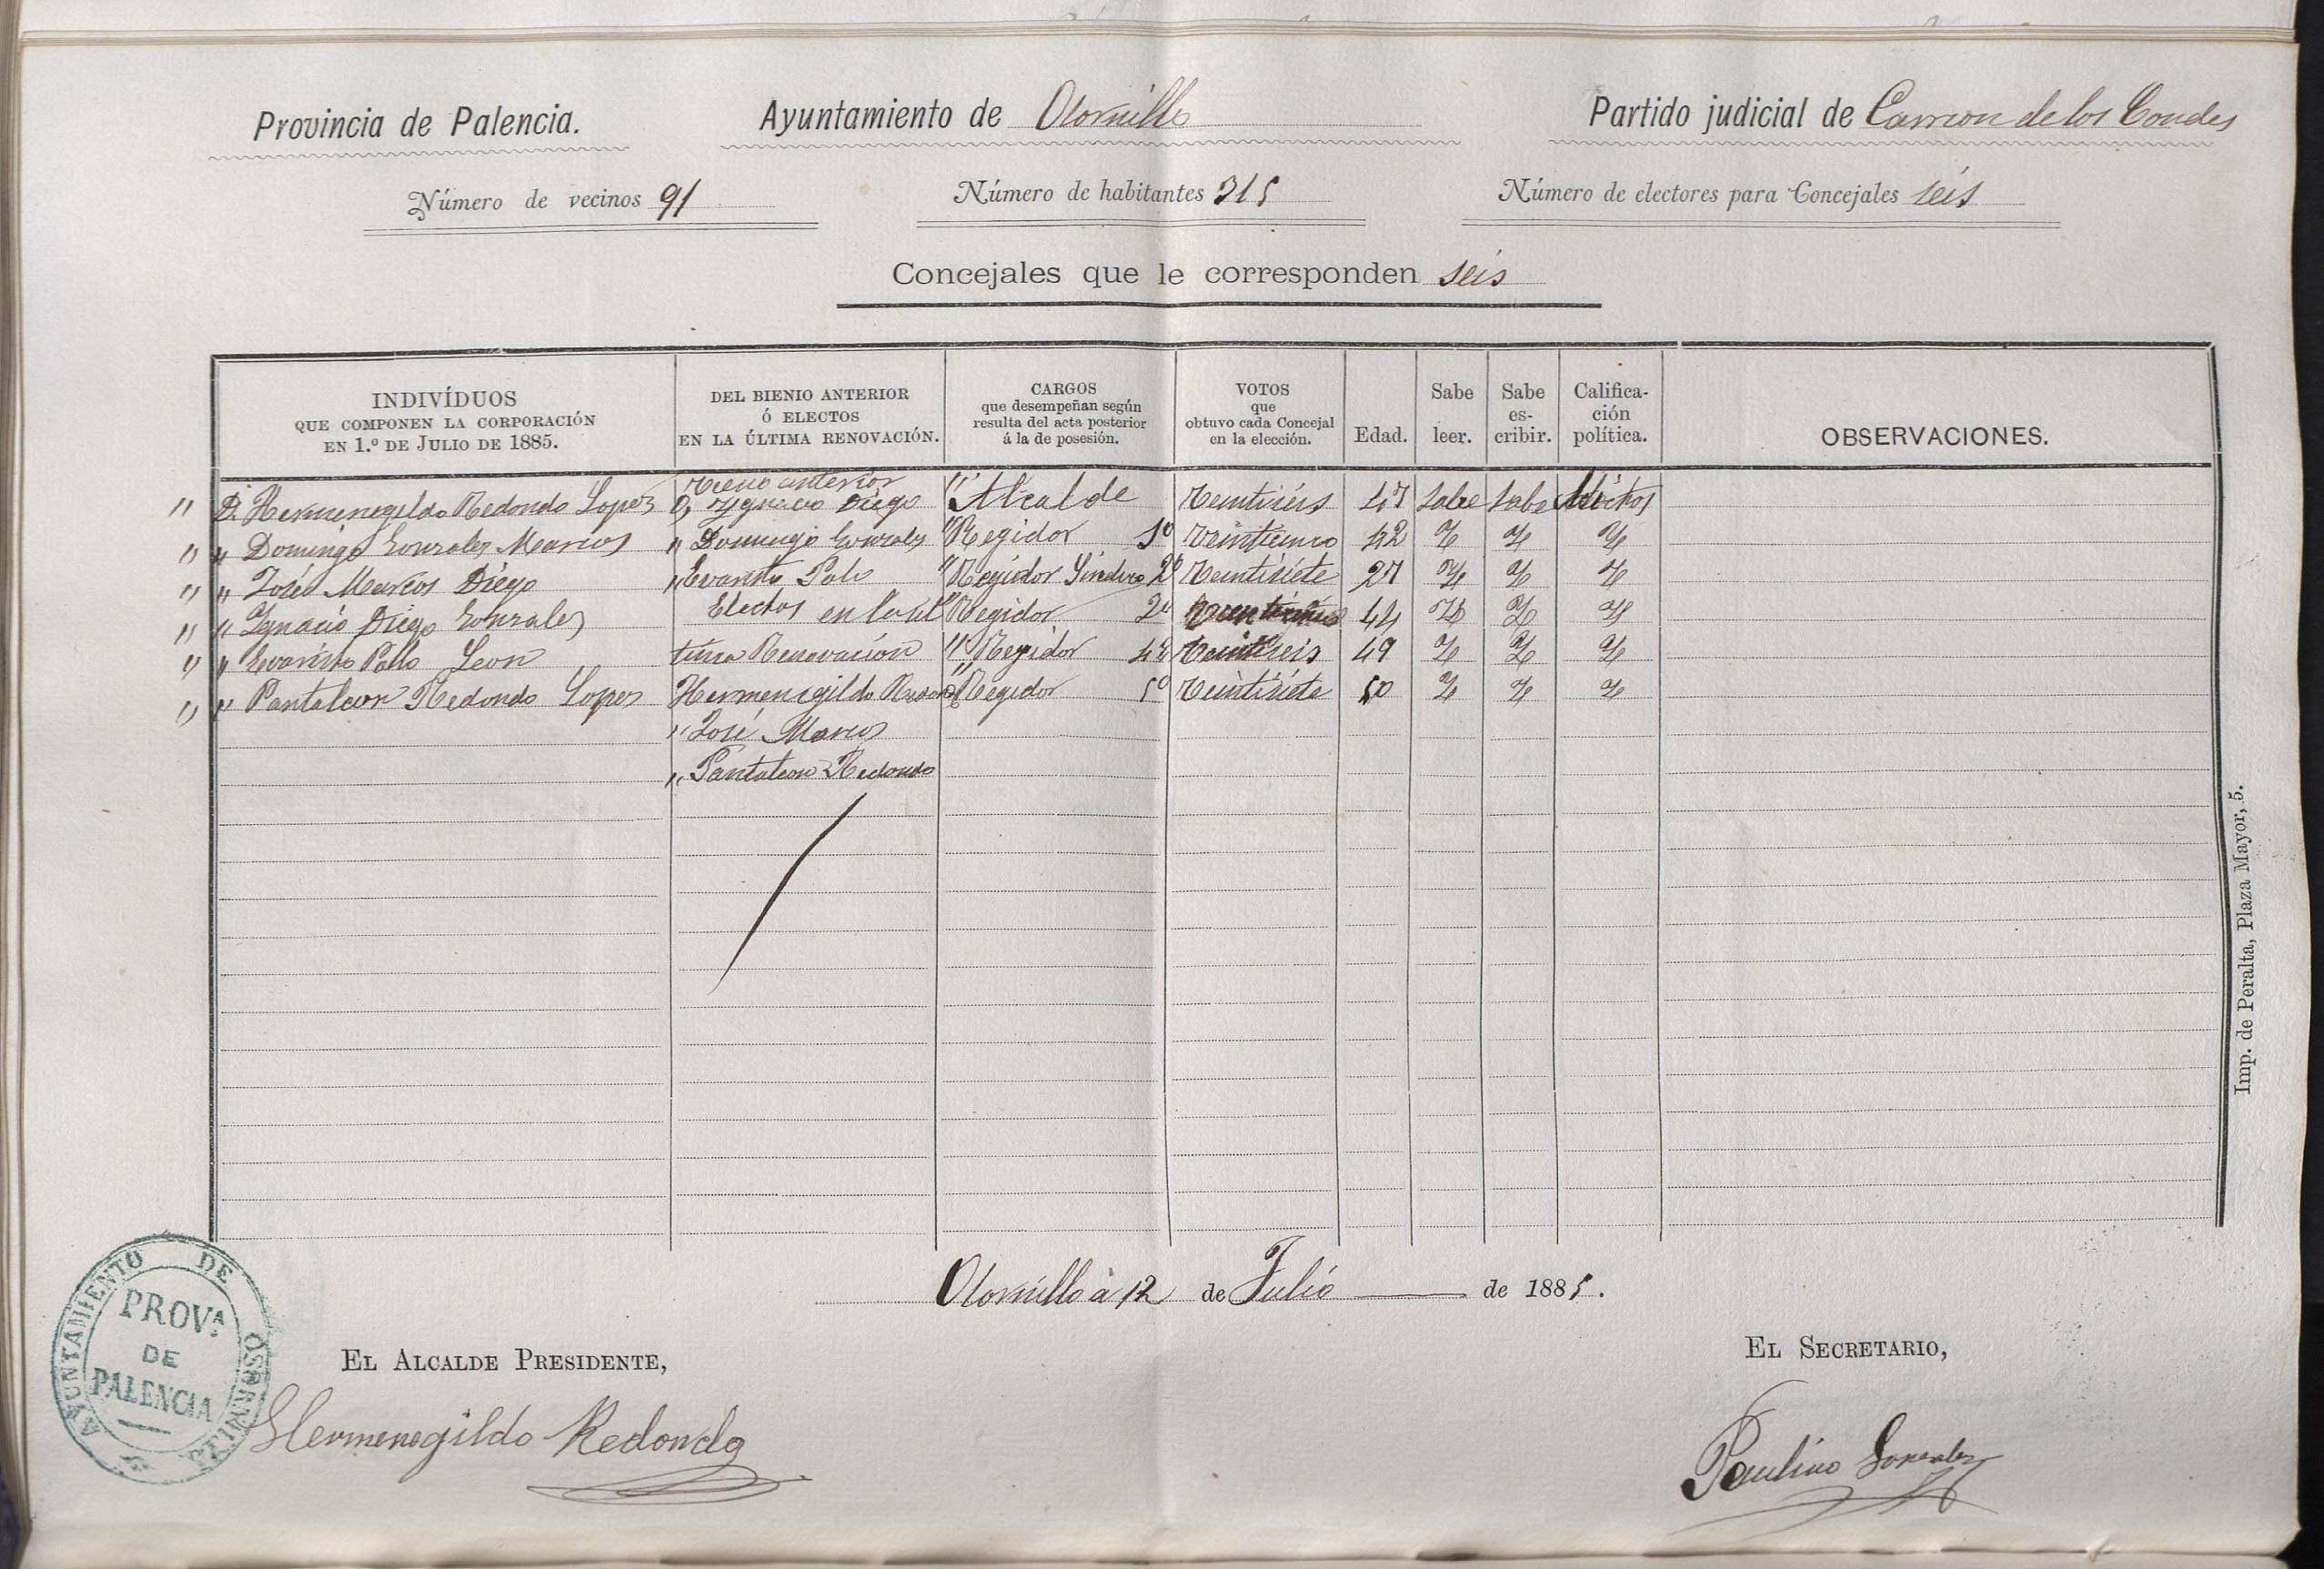 Provincia de Palencia. Ayuntamiento de Osornillo Partido judicial de Carrion de los Condes
Número de vecinos 91 Número de habitantes 315 Número de electores para Concejales seis
Concejales que le corresponden seis
INDIVÍDUOS QUE COMPONEN LA CORPORACIÓN EN 1.º DE JULIO DE 1885.
DEL BIENIO ANTERIOR Ó ELECTOS EN LA ÚLTIMA RENOVACIÓN.
CARGOS que desempeñan según resulta del acta posterior á la de posesión.
VOTOS que obtuvo cada Concejal en la elección.
Edad.
Sabe leer.
Sabe es-cribir.
Califica-ción política.
OBSERVACIONES.
" D. Hermenegildo Redondo Lopez Bieno anterior D, Ygnacio Diego " Alcalde Veintiseis 47 Sabe Sabe
" " Domingo Gonzalez Marcos " Domingo Gonzalez " Regidor 1º Veinticinco 42
" " José Marcos Diego " Evaristo Polo " Regidor Sindico 2º Veintisiete 27
" " Ygnacio Diego Gonzalez Electos en la ul " Regidor 44
" " Evaristo Pollo Leon tima Renovacion " Regidor 4º Veintiseis 49
" " Pantaleon Redondo Lopez Hermenegildo Redondo Regidor 5º Veintisiete 50
" José Marcos
" Pantaleon Redondo
Osornillo a 12 de Julio de 1885.
EL ALCALDE PRESIDENTE, EL SECRETARIO,
Hermenegildo Redondo Paulino Gonzalez
AYUNTAMIENTO DE OSORNILLO
PROV.A DE PALENCIA
Imp. de Peralta, Plaza Mayor, 5.